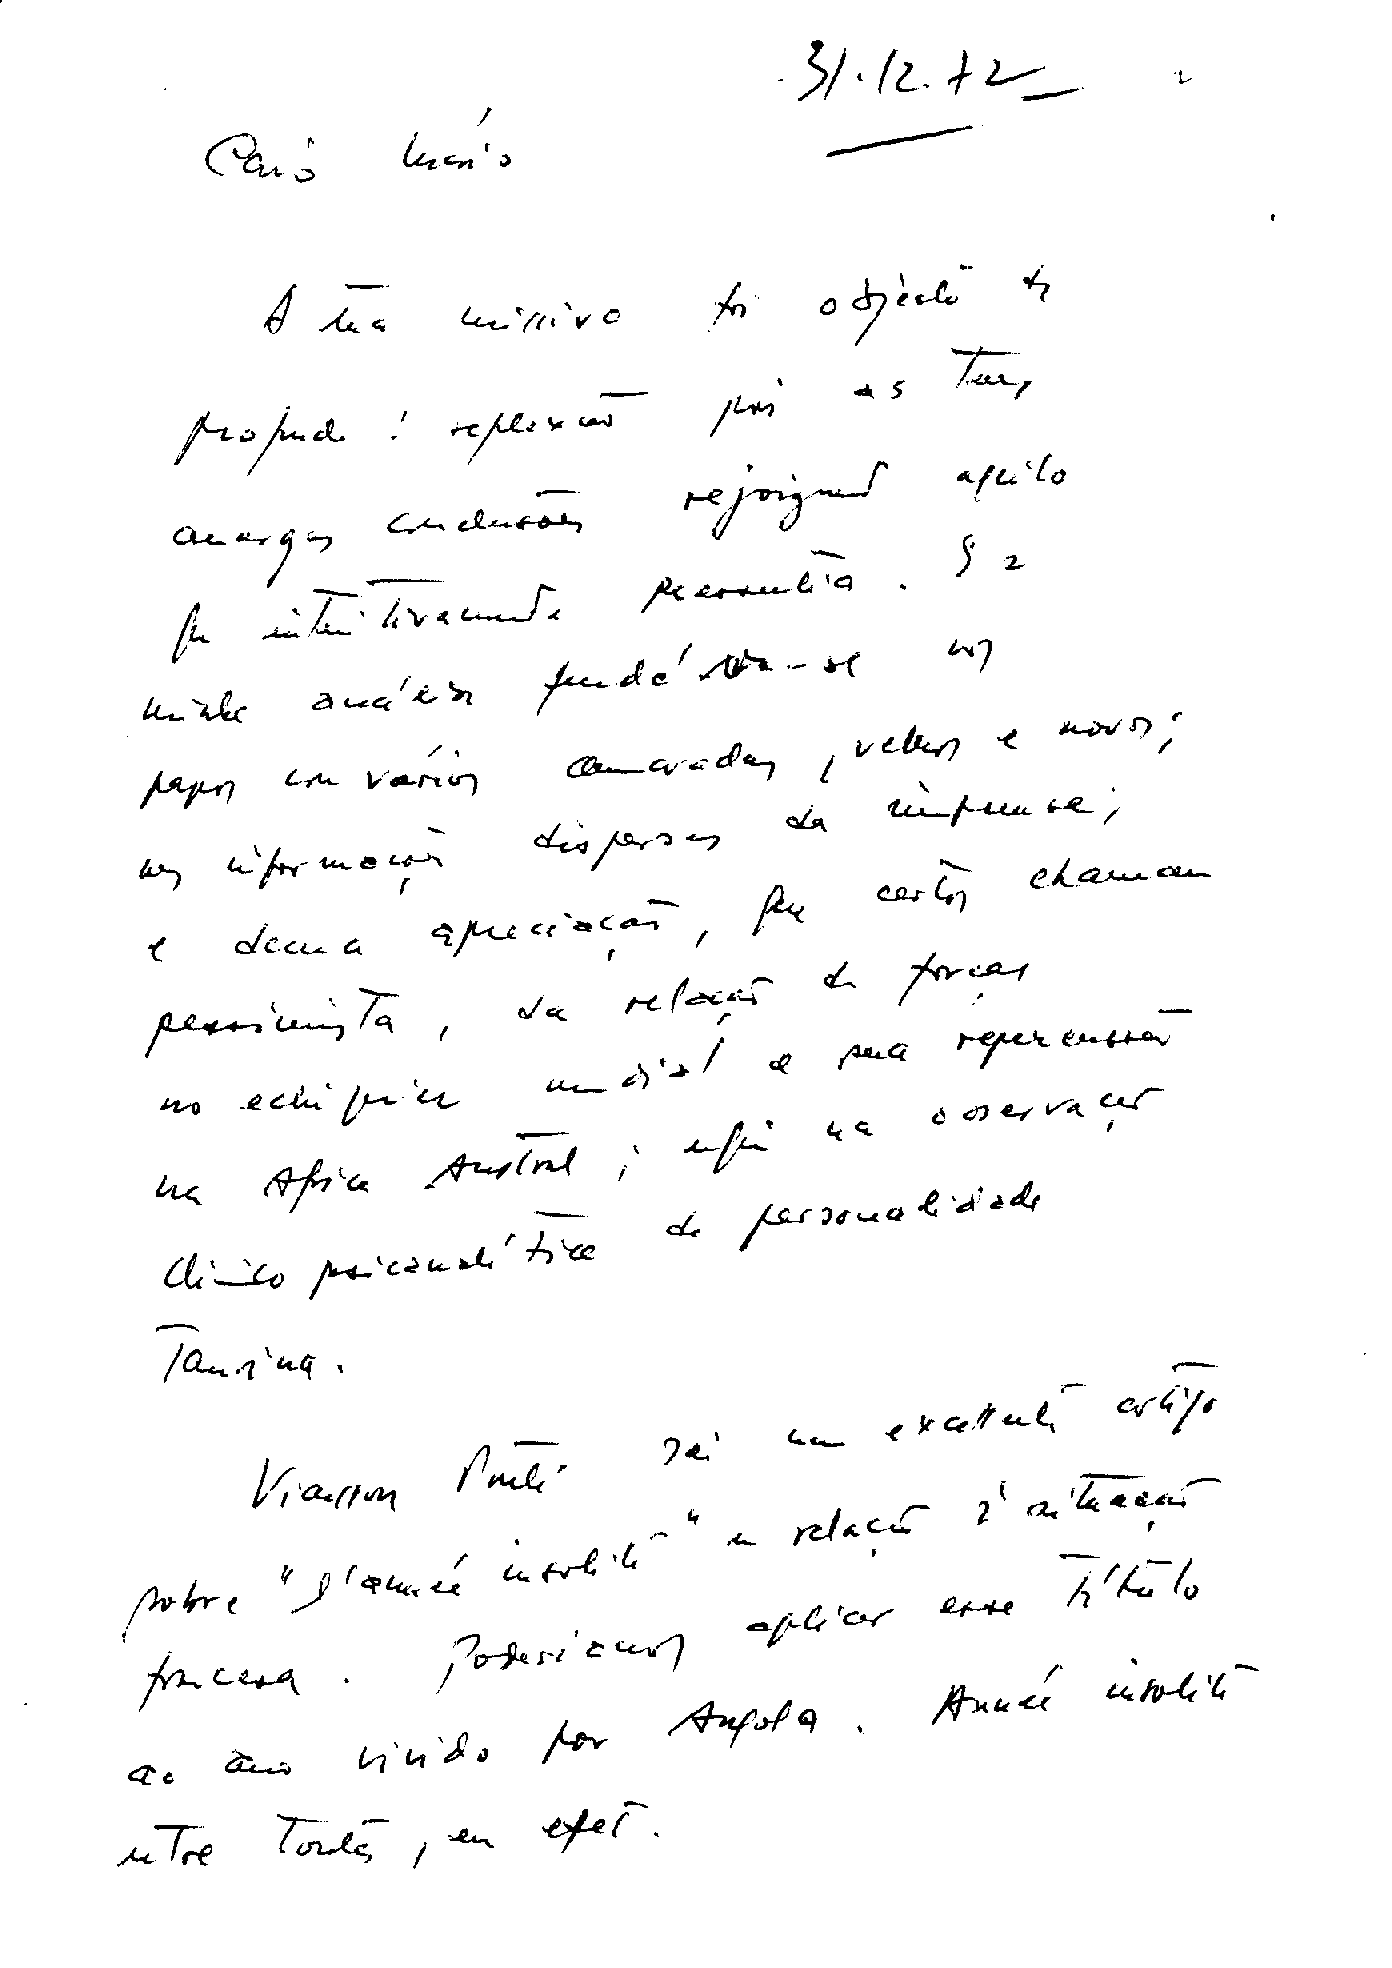 31.12.72
Caro Mário
A tua missiva foi objecto de
profunda reflexão pois as tuas
amargas conclusões rejoignent aquilo
que intuitivamente pressentia. E a
minha análise fundava-se nos
papos com vários camaradas, velhos e novos;
nas informações dispersas da imprensa;
e duma apreciação, que certos chamam
pessimista, da relação de forças
no echiquier mundial e sua repercussão
na Africa Austral; enfin na observação
clinico psicanalítica da personalidade
Viansson Ponté um excellente artigo
sobre "L'année insolite" em relação à situação
francesa. Poderiamos aplicar esse título
ao ano vivido por Angola. Année insolite
entre toutes, en effet.